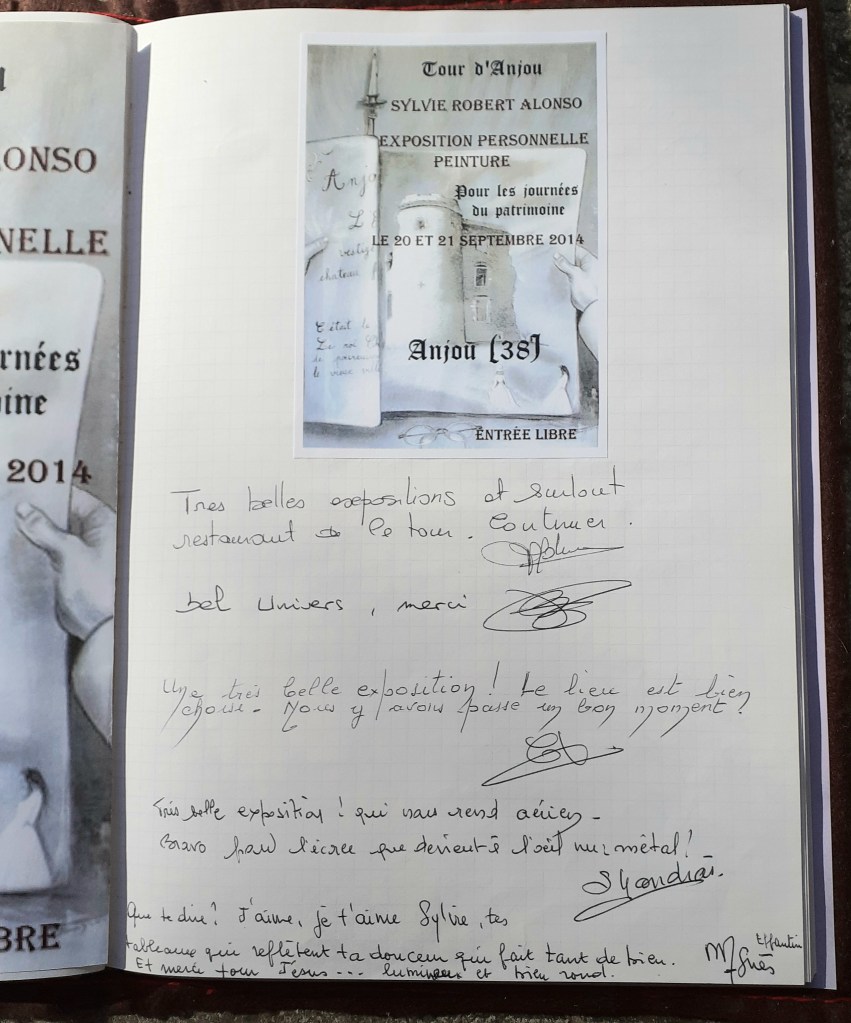 u
ONSO
NELLE
rnées
ine
2014
BRE
Tour d'Anjou
SYLVIE ROBERT ALONSO
EXPOSITION PERSONNELLE
PEINTURE
Pour les journées
du patrimoine
LE 20 ET 21 SEPTEMBRE 2014
Anjo
L
vesti
chateau
C'était le
Le roi
le vieux
Anjou (38)
ENTRÉE LIBRE
Tres belles expositions et surtout
restaurant de le tour. Continuer.
bel Univers, merci
Une très belle exposition! Le lieu est bien
choisi - Nous y avons passé un bon moment!
Très belle exposition! qui nous rend aérien -
Bravo pour que devient l'oeil métal!
Que te dire? J'aime, je t'aime Sylvie, tes
tableaux qui reflètent ta douceur qui fait tant de bien.
Et merci pour Jésus --- lumineux et bien rond.